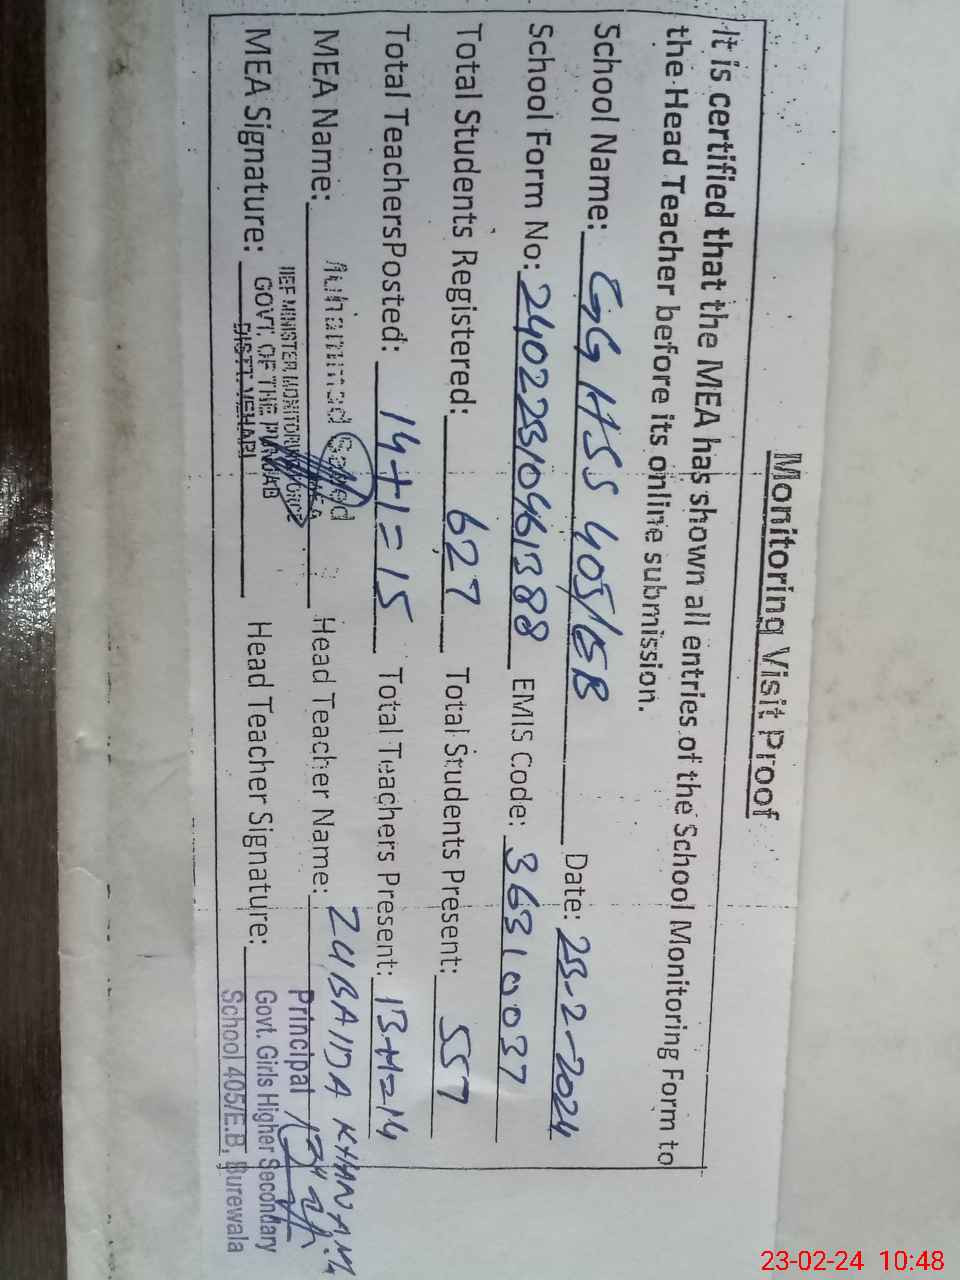 Monitoring Visit Proof
It is certified that the MEA has shown all entries of the School Monitoring Form to
the Head Teacher before its online submission.
School Name: GGHSS 405/EB Date: 23-2-2024
School Form No: 24022310961388 EMIS Code: 36310037
Total Students Registered: 627 Total Students Present: 557
Total TeachersPosted: 14+1=15 Total Teachers Present: 13+1=14
MEA Name: Muhammad Saeed Head Teacher Name: ZUBAIDA KHANAM
MEA Signature: Head Teacher Signature:
IEF MINISTER MONITORING
GOVT. OF THE PUNJAB
DISTT. VEHARI
Principal
Govt. Girls Higher Secondary
School 405/E.B, Burewala
23-02-24 10:48